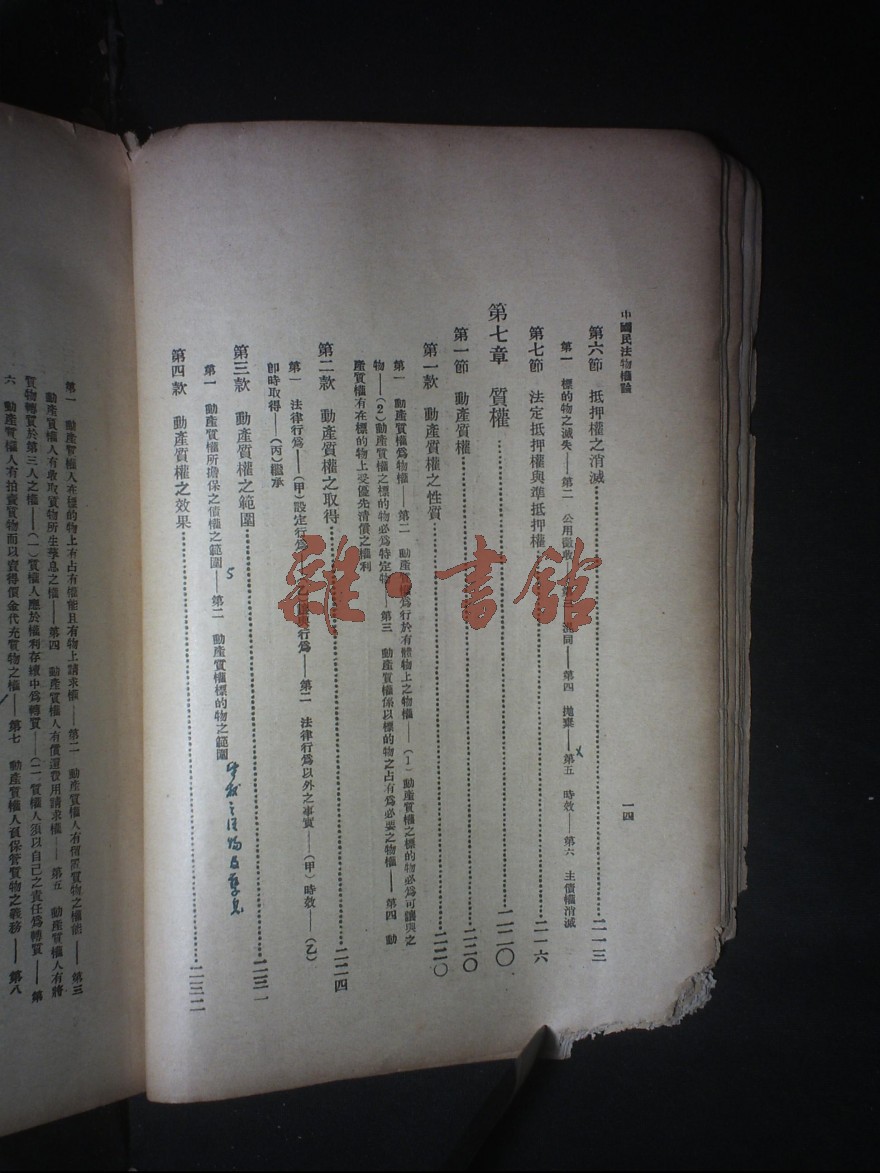 中國民法物權論
一四
第六節 抵押權之消滅……二一三
第一 標的物之滅失——第二 公用徵收——第三 混同——第四 拋棄——第五 時效——第六 主債權消滅
第七節 法定抵押權與準抵押權……二一六
第七章 質權……二二〇
第一節 動產質權……二二〇
第一款 動產質權之性質……二二〇
第一 動產質權爲物權——第二 動產質權爲行於有體物上之物權——(1)動產質權之標的物必爲可讓與之
物——(2)動產質權之標的物必爲特定物——第三 動產質權係以標的物之占有爲必要之物權——第四 動
產質權有在標的物上受優先清償之權利
第二款 動產質權之取得……二二四
第一 法律行爲——(甲)設定行爲——(乙)讓與行爲——第二 法律行爲以外之事實——(甲)時效——(乙)
即時取得——(丙)繼承
第三款 動產質權之範圍……二三一
第一 動產質權所擔保之債權之範圍——第二 動產質權標的物之範圍
5
第四款 動產質權之效果……二三二
第一 動產質權人在標的物上有占有權能且有物上請求權——第二 動產質權人有留置質物之權能——第三
動產質權人有收取質物所生孳息之權——第四 動產質權人有償還費用請求權——第五 動產質權人有將
質物轉質於第三人之權——(一)質權人應於權利存續中爲轉質——(二)質權人須以自己之責任爲轉質——第
六 動產質權人有拍賣質物而以賣得價金代充質物之權——第七 動產質權人負保管質物之義務——第八
雜·書館